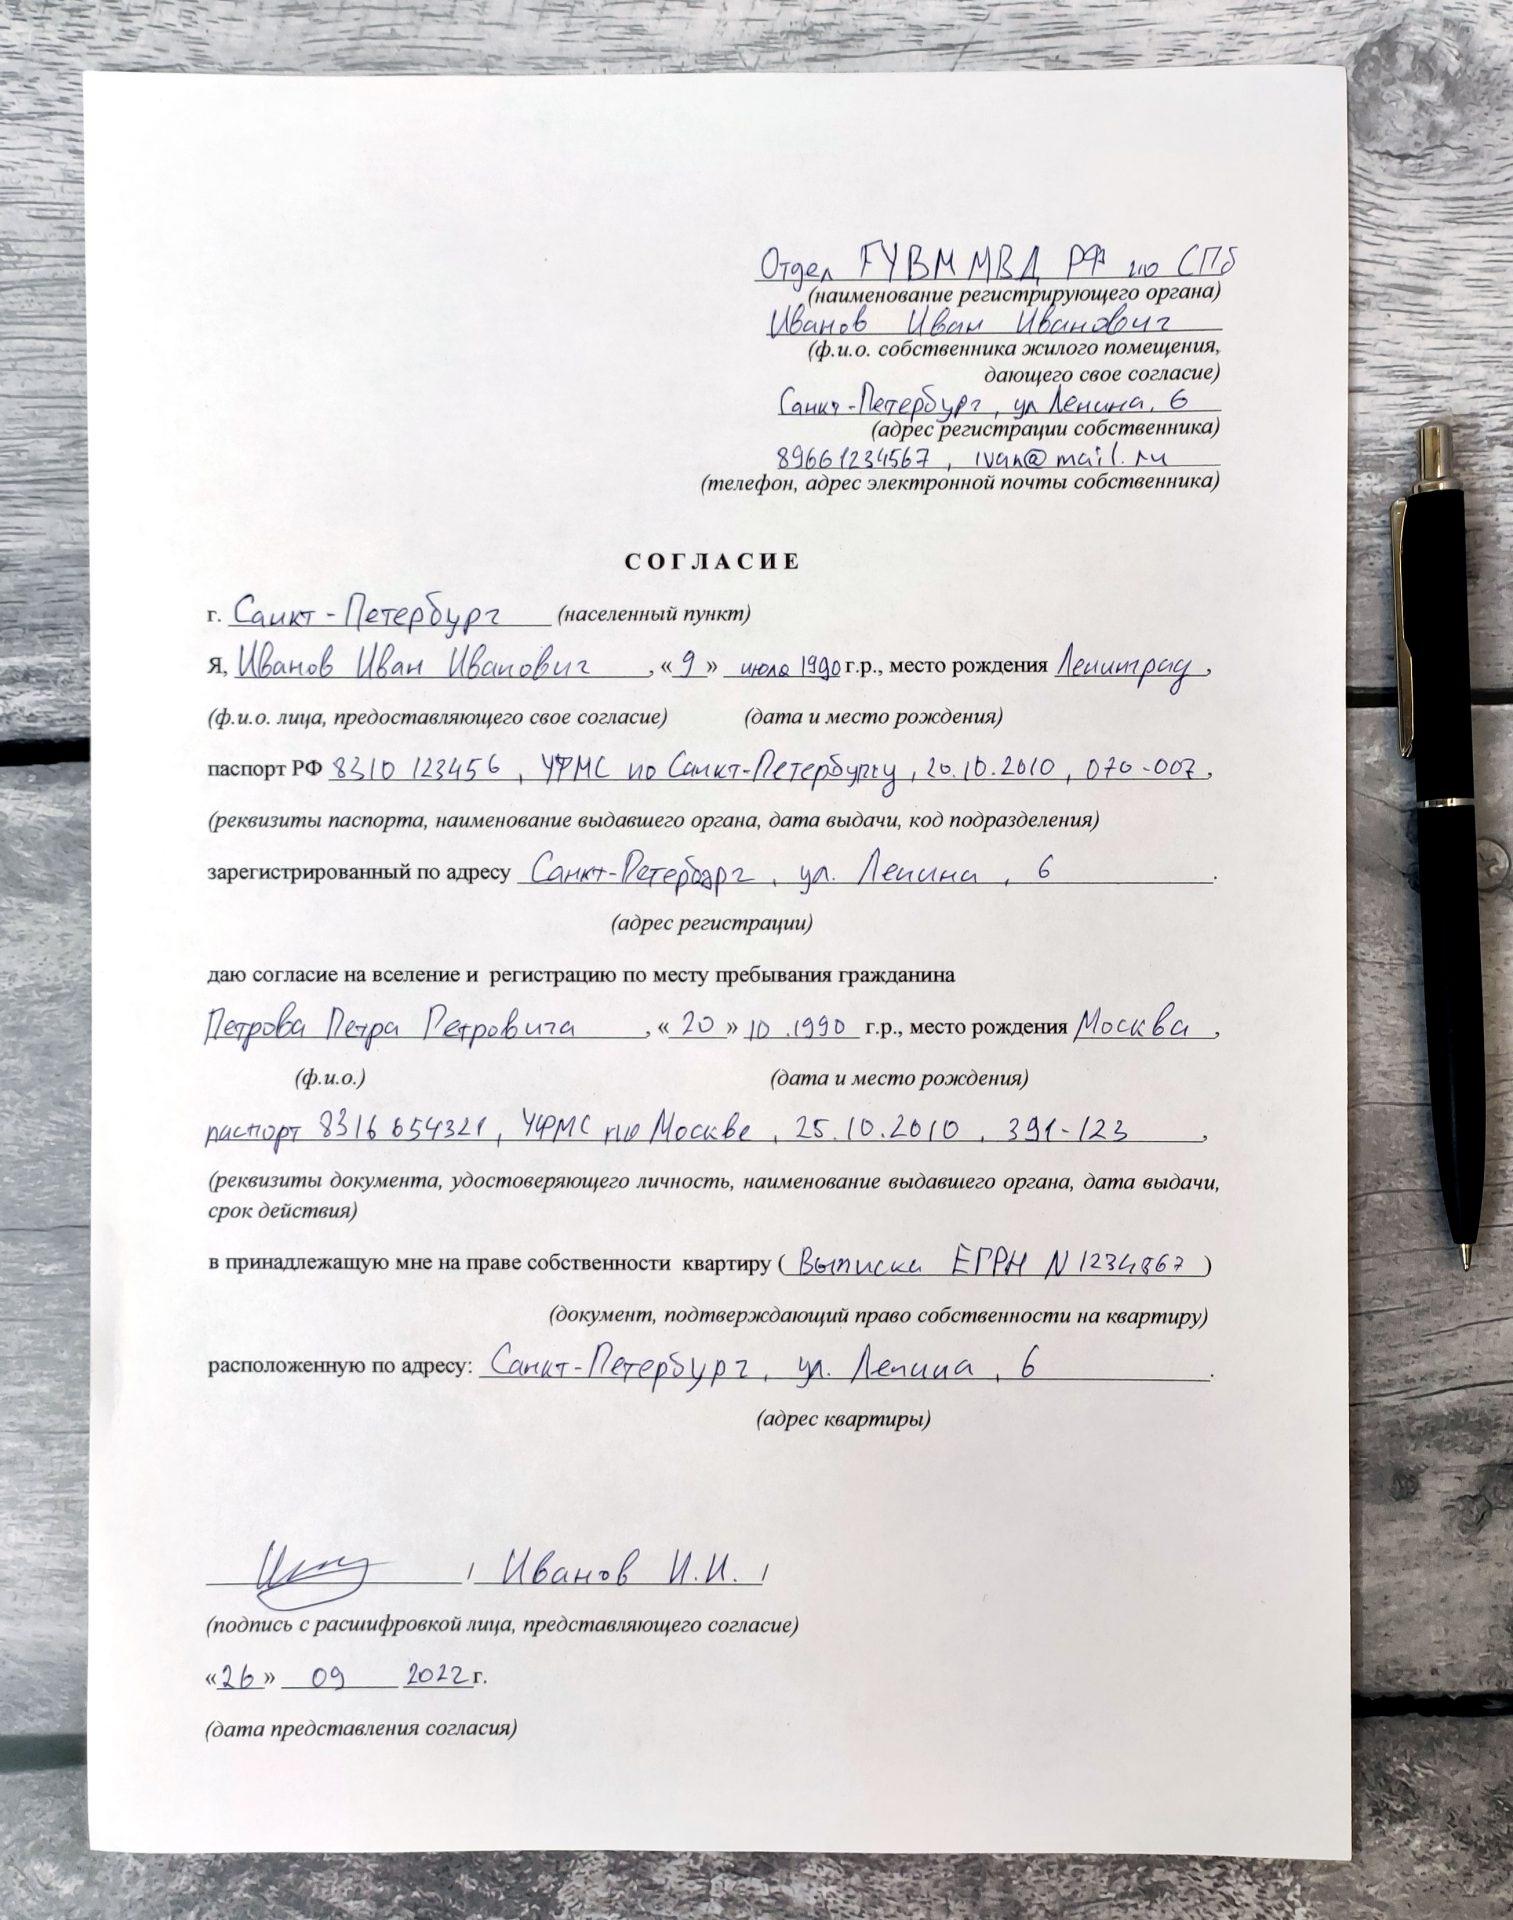 Отдел ГУВМ МВД РФ по СПб
(наименование регистрирующего органа)
Иванов Иван Иванович
(ф.и.о. собственника жилого помещения,
дающего свое согласие)
Санкт-Петербург, ул Ленина, 6
(адрес регистрации собственника)
89661234567, ivan@mail.ru
(телефон, адрес электронной почты собственника)
СОГЛАСИЕ
г. Санкт-Петербург (населенный пункт)
Я, Иванов Иван Иванович, «9» июля 1990 г.р., место рождения Ленинград,
(ф.и.о. лица, предоставляющего свое согласие) (дата и место рождения)
паспорт РФ 8310 123456, УФМС по Санкт-Петербургу, 20.10.2010, 070-007,
(реквизиты паспорта, наименование выдавшего органа, дата выдачи, код подразделения)
зарегистрированный по адресу Санкт-Петербург, ул. Ленина, 6.
(адрес регистрации)
даю согласие на вселение и регистрацию по месту пребывания гражданина
Петрова Петра Петровича, «20» 10.1990 г.р., место рождения Москва,
(ф.и.о.) (дата и место рождения)
паспорт 8316 654321, УФМС по Москве, 25.10.2010, 391-123,
(реквизиты документа, удостоверяющего личность, наименование выдавшего органа, дата выдачи,
срок действия)
в принадлежащую мне на праве собственности квартиру (Выписка ЕГРН N 1234567)
(документ, подтверждающий право собственности на квартиру)
расположенную по адресу: Санкт-Петербург, ул. Ленина, 6.
(адрес квартиры)
/ Иванов И.И. /
(подпись с расшифровкой лица, представляющего согласие)
«26» 09 2022 г.
(дата представления согласия)